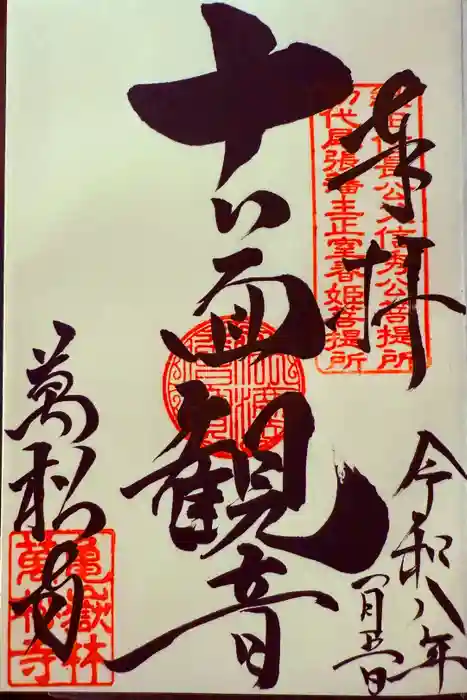 奉拝
織田信長公父信秀公菩提所
初代尾張藩主正室春姫菩提所
十一面観音
萬松寺
龜嶽林
萬松寺
令和八年